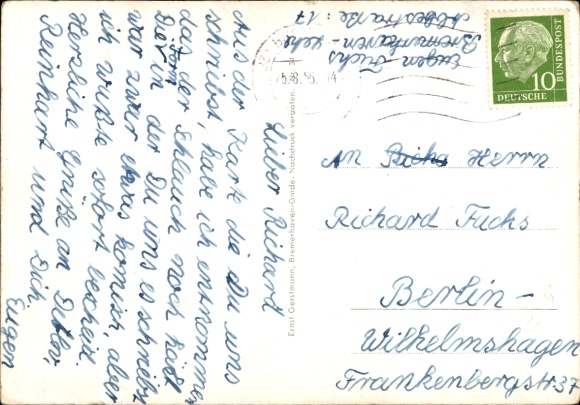 Eugen Fuchs
Bremerhaven-Lehe
straße: 17
58.56. 14
DEUTSCHE
BUNDESPOST
10
Lieber Richard
Aus der Karte die Du uns
schriebst, habe ich entnommen
das der Schlauch noch hält
Die Form in der Du uns es schreibst
war zwar etwas komisch, aber
ich wußte sofort bescheid.
Herzliche Grüße an Detlev,
Reinhart und Dich
Eugen
Ernst Gerstmann, Bremerhaven-Gmde. Nachdruck verboten.
An Herrn
Richard Fuchs
Berlin-
Wilhelmshagen
Frankenbergstr. 37